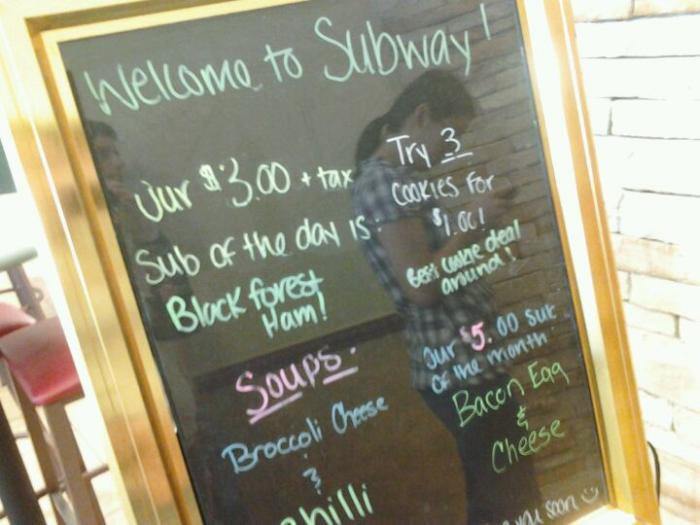 Welcome to Subway!
Our $3.00 + tax
Sub of the day is
Black forest
Ham!
Try 3
cookies for
$1.00!
Best cookie deal
around!
Soups.
Broccoli Cheese
&
hilli
Our $5.00 Sub
of the month
Bacon Egg
&
Cheese
you soon